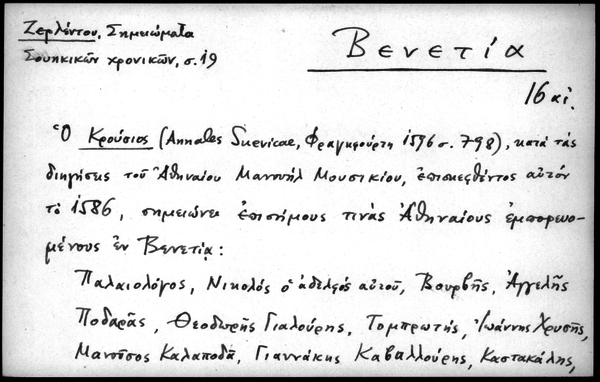 Ζερλέντου, Σημειώματα
Σουηκικῶν χρονικῶν, σ. 19
Βενετία
16 αἰ.
Ὁ Κρούσιος (Annales Suevicae, Φραγκφούρτη 1596 σ. 798), κατὰ τὰς
διηγήσεις τοῦ Ἀθηναίου Μανουὴλ Μουσικίου, ἐπισκεφθέντος αὐτόν
τὸ 1586, σημειώνει ἐπισήμους τινὰς Ἀθηναίους ἐμπορευο-
μένους ἐν Βενετίᾳ:
Παλαιολόγος, Νικολός ὁ ἀδελφός αὐτοῦ, Βουρβῆς, Ἀγγελῆς
Ποδαρᾶς, Θεοδωρῆς Γιαλούρης, Τομπρωτής, Ἰωάννης Χρυσῆς,
Μανοῦσος Καλαποδᾶ, Γιαννάκης Καβαλλούρης, Καστακάλης,